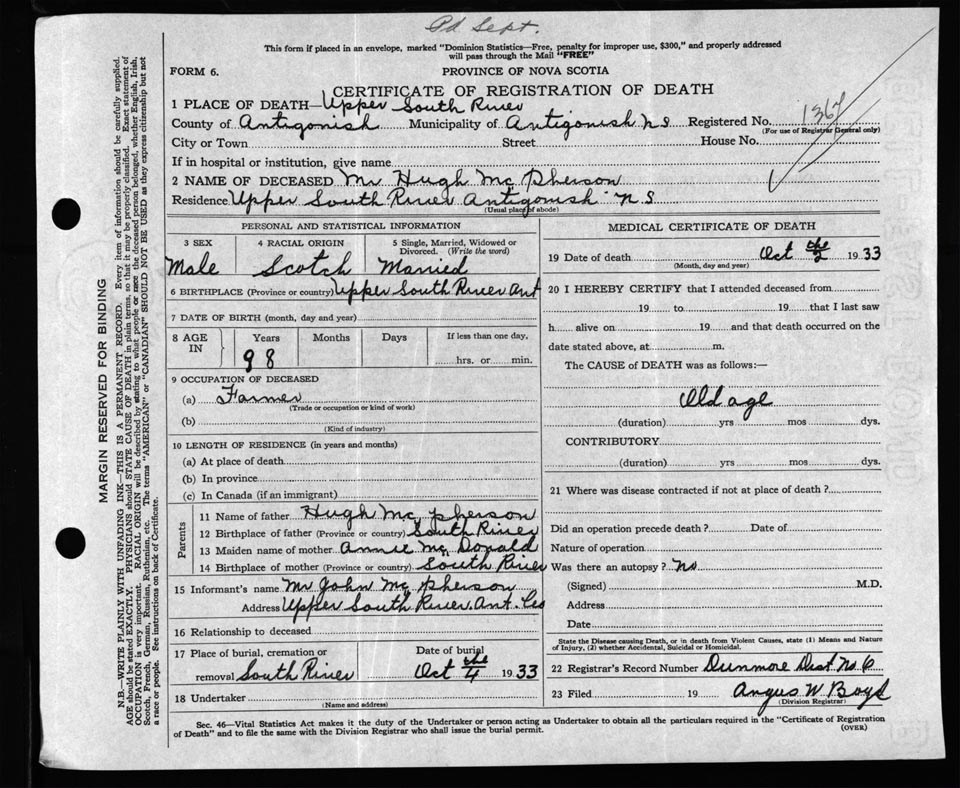 Pd Sept.
This form if placed in an envelope, marked "Dominion Statistics—Free, penalty for improper use, $300," and properly addressed
will pass through the Mail "FREE"
FORM 6.
PROVINCE OF NOVA SCOTIA
CERTIFICATE OF REGISTRATION OF DEATH
1 PLACE OF DEATH—Upper South River
County of Antigonish Municipality of Antigonish N S Registered No. 1367
(For use of Registrar General only)
City or Town Street House No.
If in hospital or institution, give name
2 NAME OF DECEASED Mr Hugh Mc Pherson
Residence Upper South River Antigonish N S
(Usual place of abode)
PERSONAL AND STATISTICAL INFORMATION
3 SEX 4 RACIAL ORIGIN 5 Single, Married, Widowed or
Divorced. (Write the word)
Male Scotch Married
6 BIRTHPLACE (Province or country) Upper South River Ant
7 DATE OF BIRTH (month, day and year)
8 AGE IN Years Months Days If less than one day,
98 hrs. or min.
9 OCCUPATION OF DECEASED
(a) Farmer
(Trade or occupation or kind of work)
(b)
(Kind of industry)
10 LENGTH OF RESIDENCE (in years and months)
(a) At place of death
(b) In province
(c) In Canada (if an immigrant)
Parents
11 Name of father Hugh Mc Pherson
12 Birthplace of father (Province or country) South River
13 Maiden name of mother Annie Mc Donald
14 Birthplace of mother (Province or country) South River
15 Informant's name Mr John Mc Pherson
Address Upper South River Ant. Co
16 Relationship to deceased
17 Place of burial, cremation or Date of burial
removal South River Oct the 4 1933
18 Undertaker
(Name and address)
MEDICAL CERTIFICATE OF DEATH
19 Date of death Oct the 2 1933
(Month, day and year)
20 I HEREBY CERTIFY that I attended deceased from
19 to 19 that I last saw
h alive on 19 and that death occurred on the
date stated above, at m.
The CAUSE of DEATH was as follows:—
Old age
(duration) yrs mos dys.
CONTRIBUTORY
(duration) yrs mos dys.
21 Where was disease contracted if not at place of death?
Did an operation precede death? Date of
Nature of operation
Was there an autopsy? No
(Signed) M.D.
Address
Date
State the Disease causing Death, or in death from Violent Causes, state (1) Means and Nature
of Injury, (2) whether Accidental, Suicidal or Homicidal.
22 Registrar's Record Number Dunmore Dist No 6
23 Filed 19 Angus W Boyd
(Division Registrar)
Sec. 46—Vital Statistics Act makes it the duty of the Undertaker or person acting as Undertaker to obtain all the particulars required in the "Certificate of Registration
of Death" and to file the same with the Division Registrar who shall issue the burial permit.
(OVER)
MARGIN RESERVED FOR BINDING
N.B.—WRITE PLAINLY WITH UNFADING INK—THIS IS A PERMANENT RECORD. Every item of information should be carefully supplied.
AGE should be stated EXACTLY. PHYSICIANS should STATE CAUSE OF DEATH in plain terms, so that it may be properly classified. Exact statement of
OCCUPATION is very important. RACIAL ORIGIN will be described by stating to what people or race the deceased person belonged, whether English, Irish,
Scotch, French, German, Russian, Ruthenian, etc. The terms "AMERICAN" or "CANADIAN" SHOULD NOT BE USED as they express citizenship but not
a race or people. See instructions on back of Certificate.